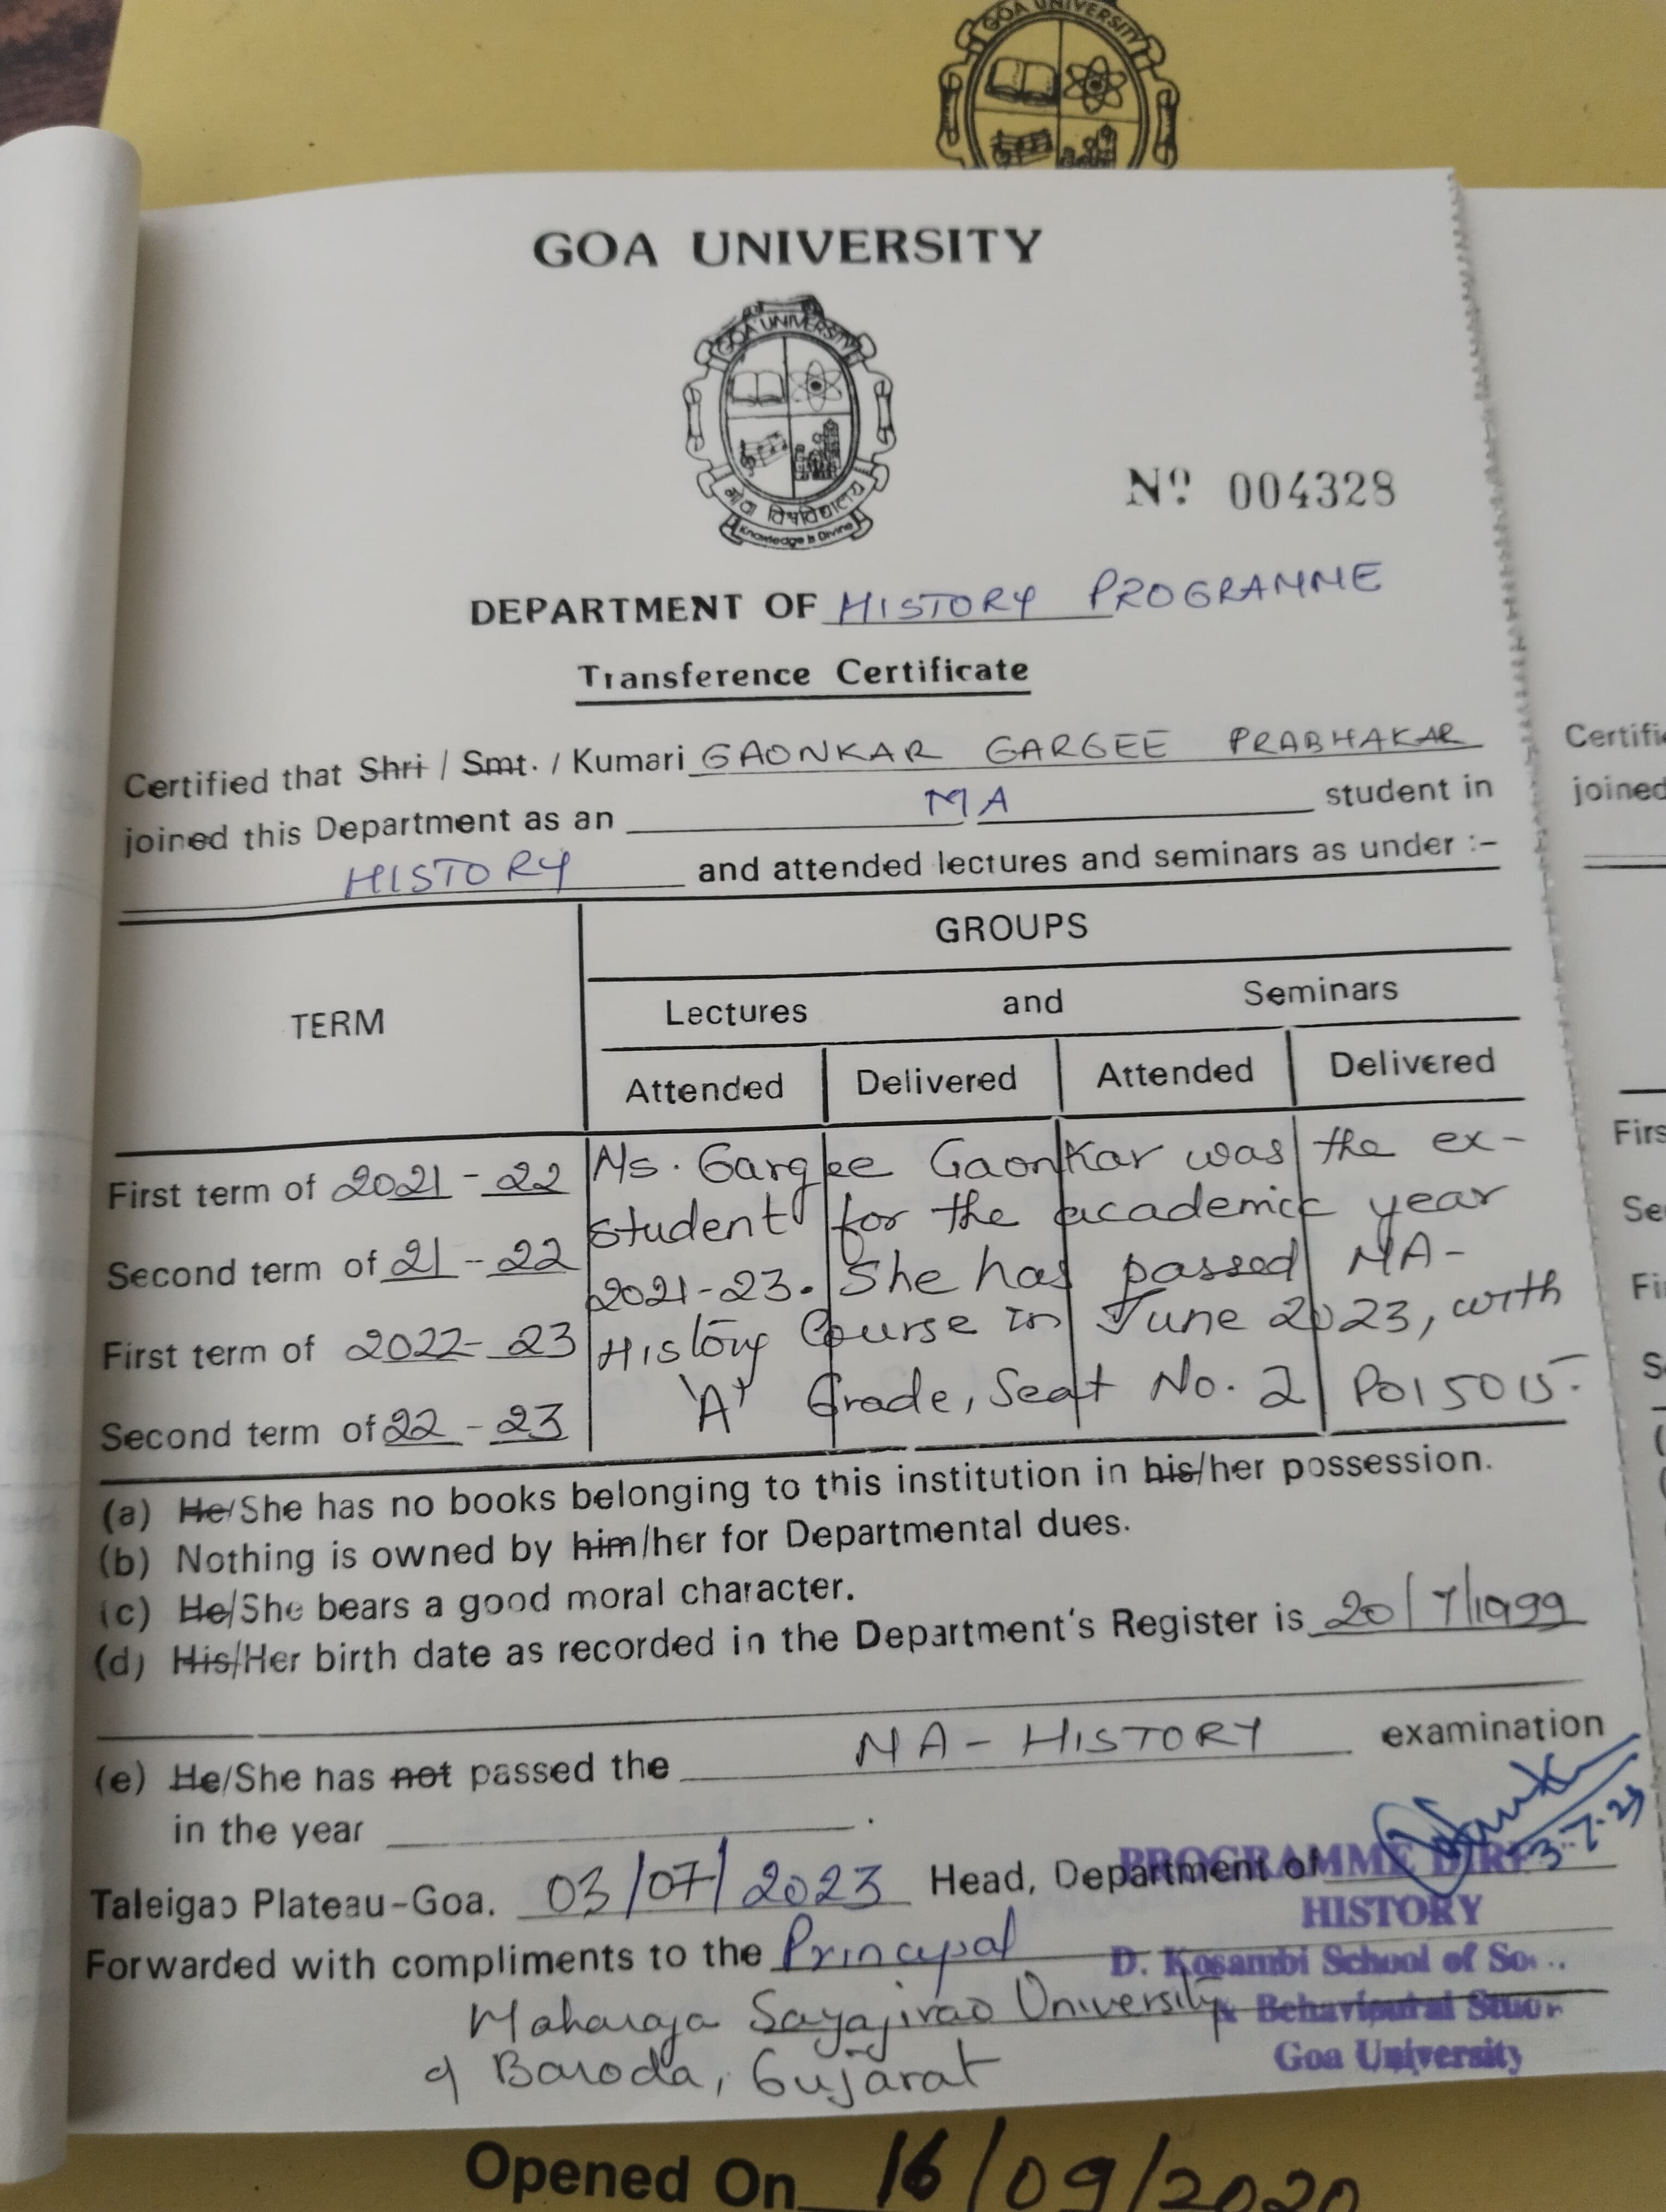 GOA UNIVERSITY
GOA UNIVERSITY
GOA UNIVERSITY
गोवा विश्वविद्यालय
Knowledge is Divine
Nº 004328
DEPARTMENT OF HISTORY PROGRAMME
Transference Certificate
Certified that Shri / Smt. / Kumari GAONKAR GARGEE PRABHAKAR
joined this Department as an MA student in
HISTORY and attended lectures and seminars as under :-
GROUPS
TERM
Lectures and Seminars
Attended Delivered Attended Delivered
First term of 2021-22 Ms. Gargee Gaonkar was the ex-
Second term of 21-22 student for the academic year
2021-23. She has passed MA-
First term of 2022-23 History Course in June 2023, with
Second term of 22-23 'A' Grade, Seat No. 2 PO15015.
(a) He/She has no books belonging to this institution in his/her possession.
(b) Nothing is owned by him/her for Departmental dues.
(c) He/She bears a good moral character.
(d) His/Her birth date as recorded in the Department's Register is 20/7/1999
(e) He/She has not passed the MA-HISTORY examination
in the year .
3-7-23
Taleigao Plateau-Goa. 03/07/2023 Head, Department of
PROGRAMME DIRE
HISTORY
Forwarded with compliments to the Principal
D. Kosambi School of So
Maharaja Sayajirao University
Behavioural
of Baroda, Gujarat
Goa University
Opened On 16/09/2020
Certifi
joined
Firs
Se
Fi
S